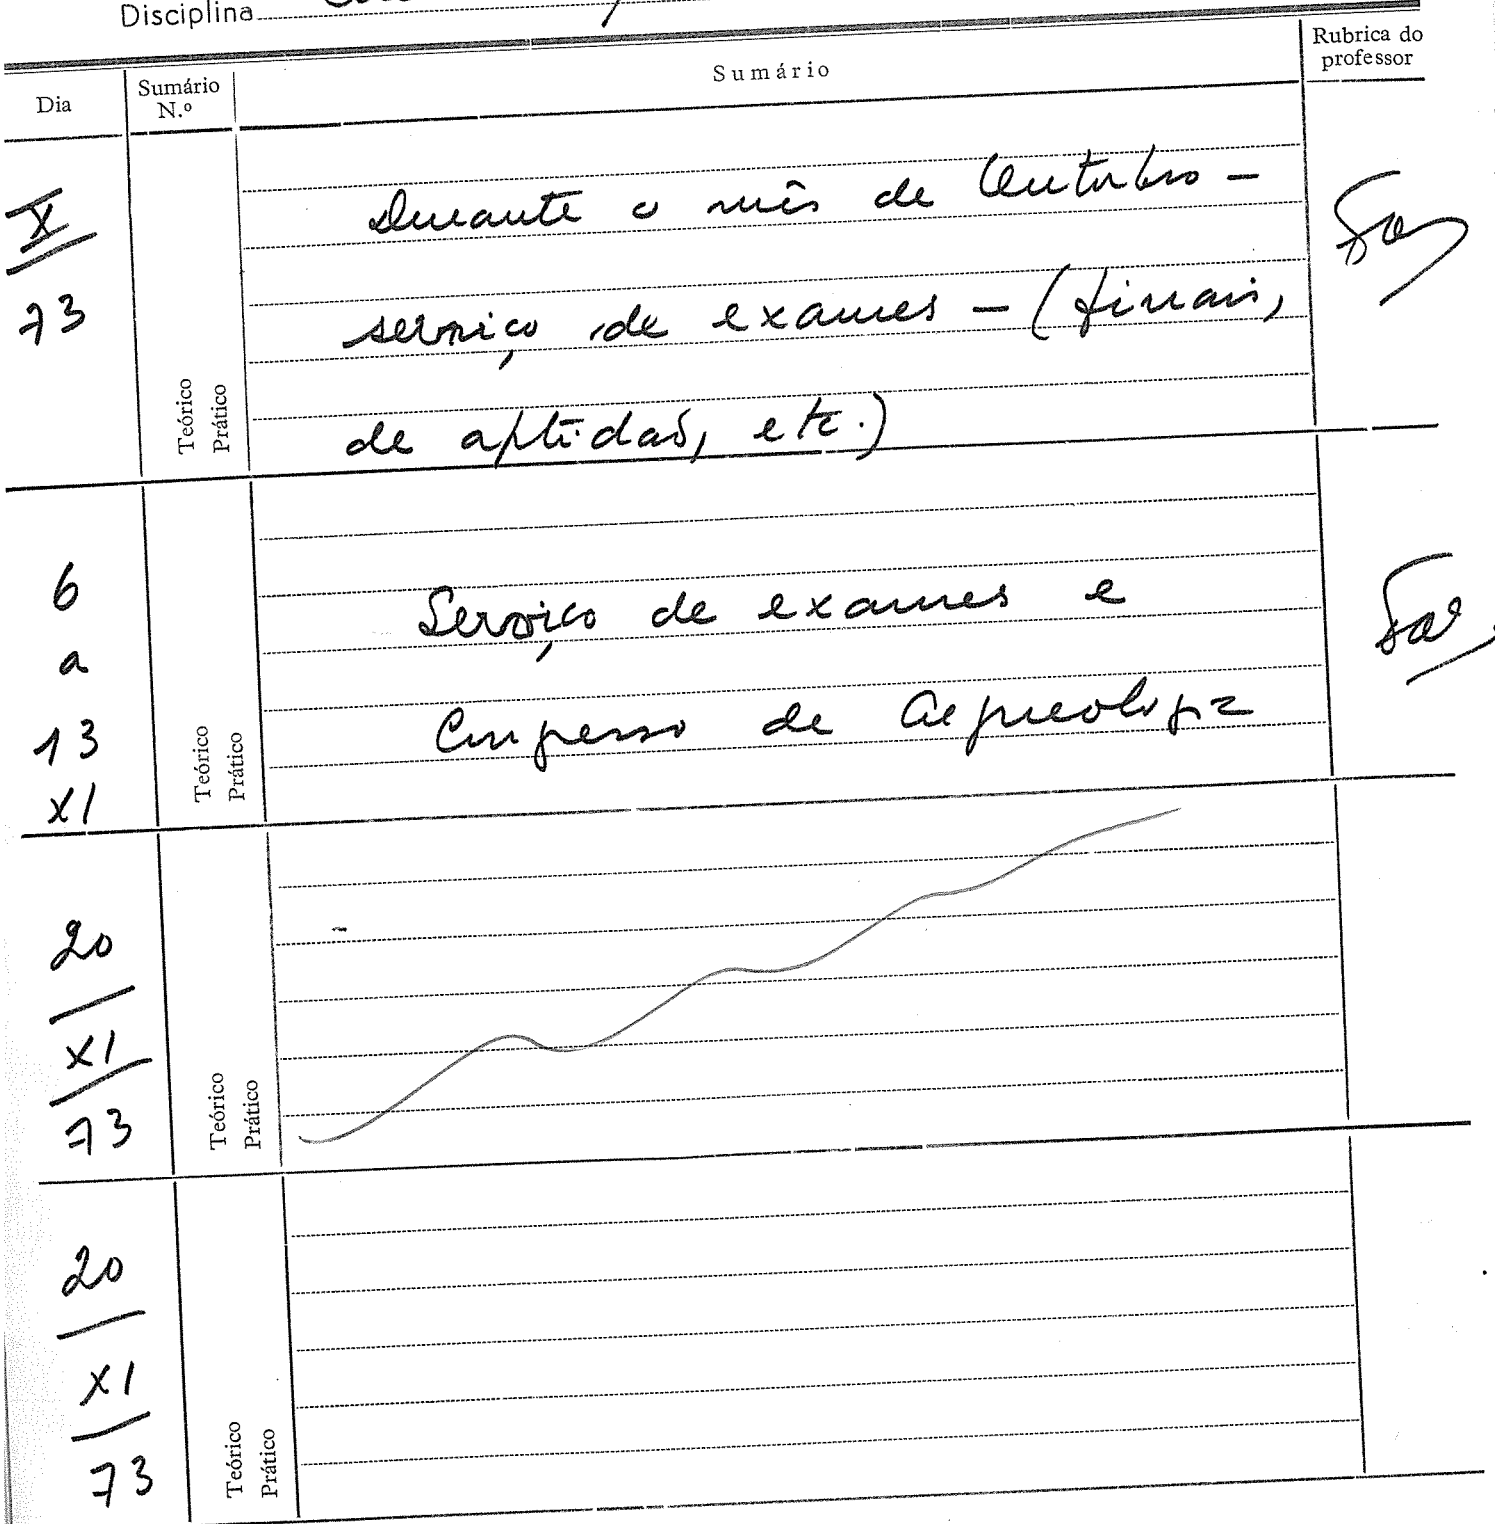 Disciplina
Dia
Sumário N.º
Sumário
Rubrica do professor
X
73
Durante o mês de Outubro –
serviço de exames – (finais,
de aptidão, etc.)
Teórico
Prático
6
a
13
XI
Serviço de exames e
Congresso de Arqueologia
Teórico
Prático
20
XI
73
Teórico
Prático
20
XI
73
Teórico
Prático